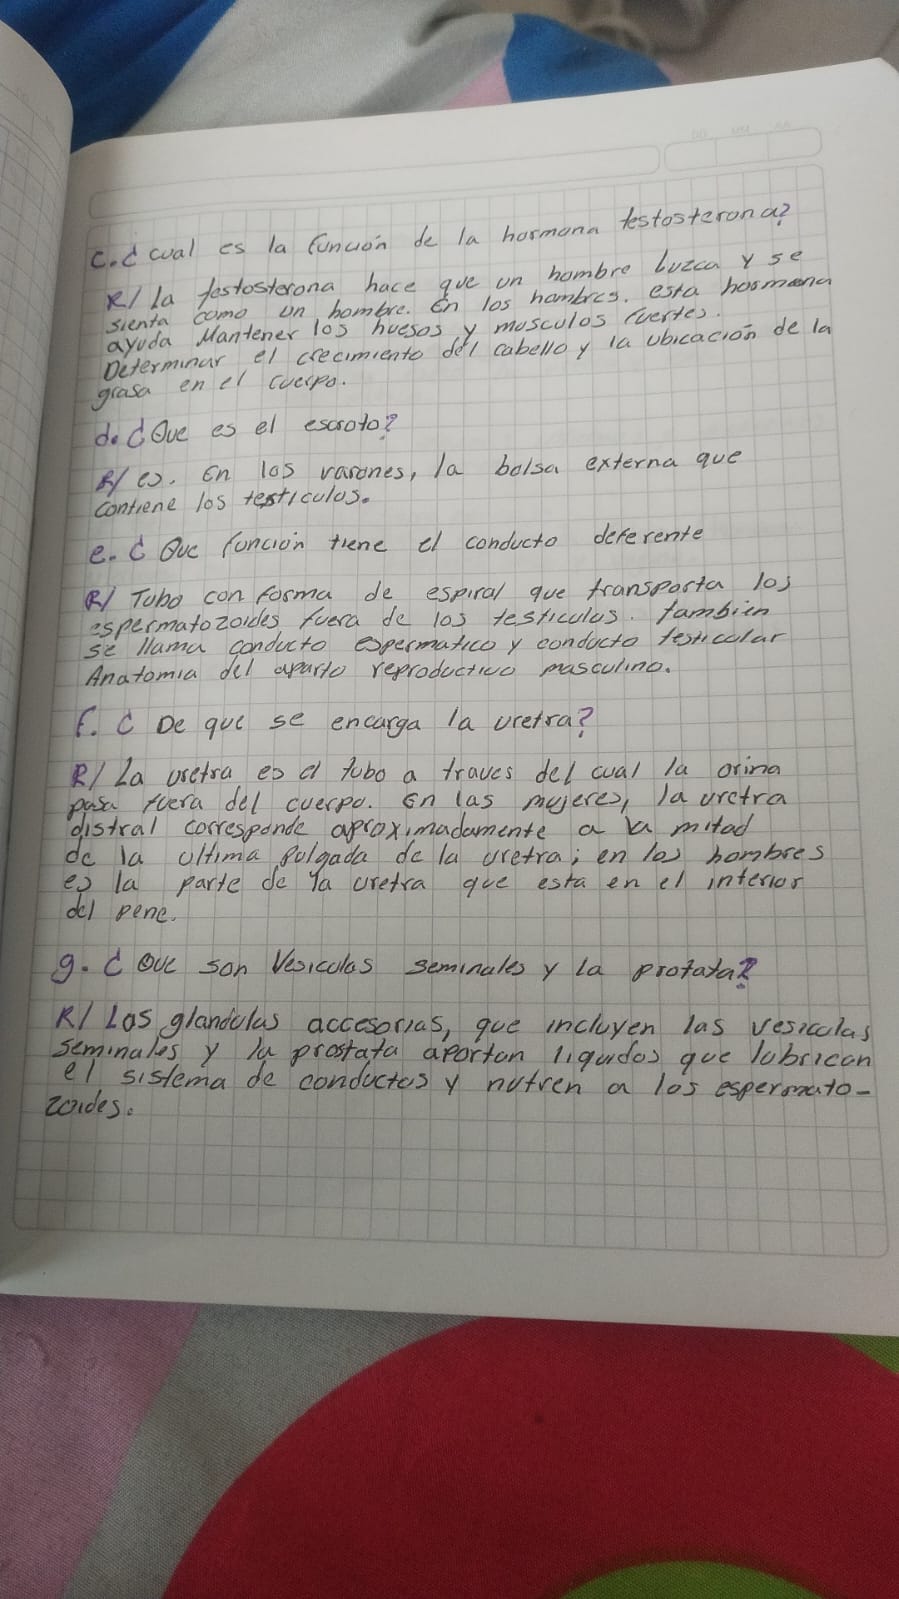 c. ¿ cual es la función de la hormona testosterona?
R/ la testosterona hace que un hombre luzca y se
sienta como un hombre. En los hombres. esta hormona
ayuda Mantener los huesos y musculos fuertes.
Determinar el crecimiento del cabello y la ubicación de la
grasa en el cuerpo.
d. ¿Que es el escroto?
R/ es. En los varones, la bolsa externa que
contiene los testiculos.
e. ¿ Que función tiene el conducto deferente
R/ Tubo con forma de espiral que transporta los
espermatozoides fuera de los testiculos. tambien
se llama conducto espermatico y conducto testicular
Anatomia del aparto reproductivo masculino.
f. ¿ De que se encarga la uretra?
R/ La uretra es el tubo a traves del cual la orina
pasa fuera del cuerpo. En las mujeres, la uretra
distral corresponde aproximadamente a la mitad
de la ultima pulgada de la uretra; en los hombres
es la parte de la uretra que esta en el interior
del pene.
g. ¿ Que son Vesiculas seminales y la protata?
R/ Las glandulas accesorias, que incluyen las vesiculas
seminales y la prostata aportan liquidos que lubrican
el sistema de conductos y nutren a los espermato-
zoides.